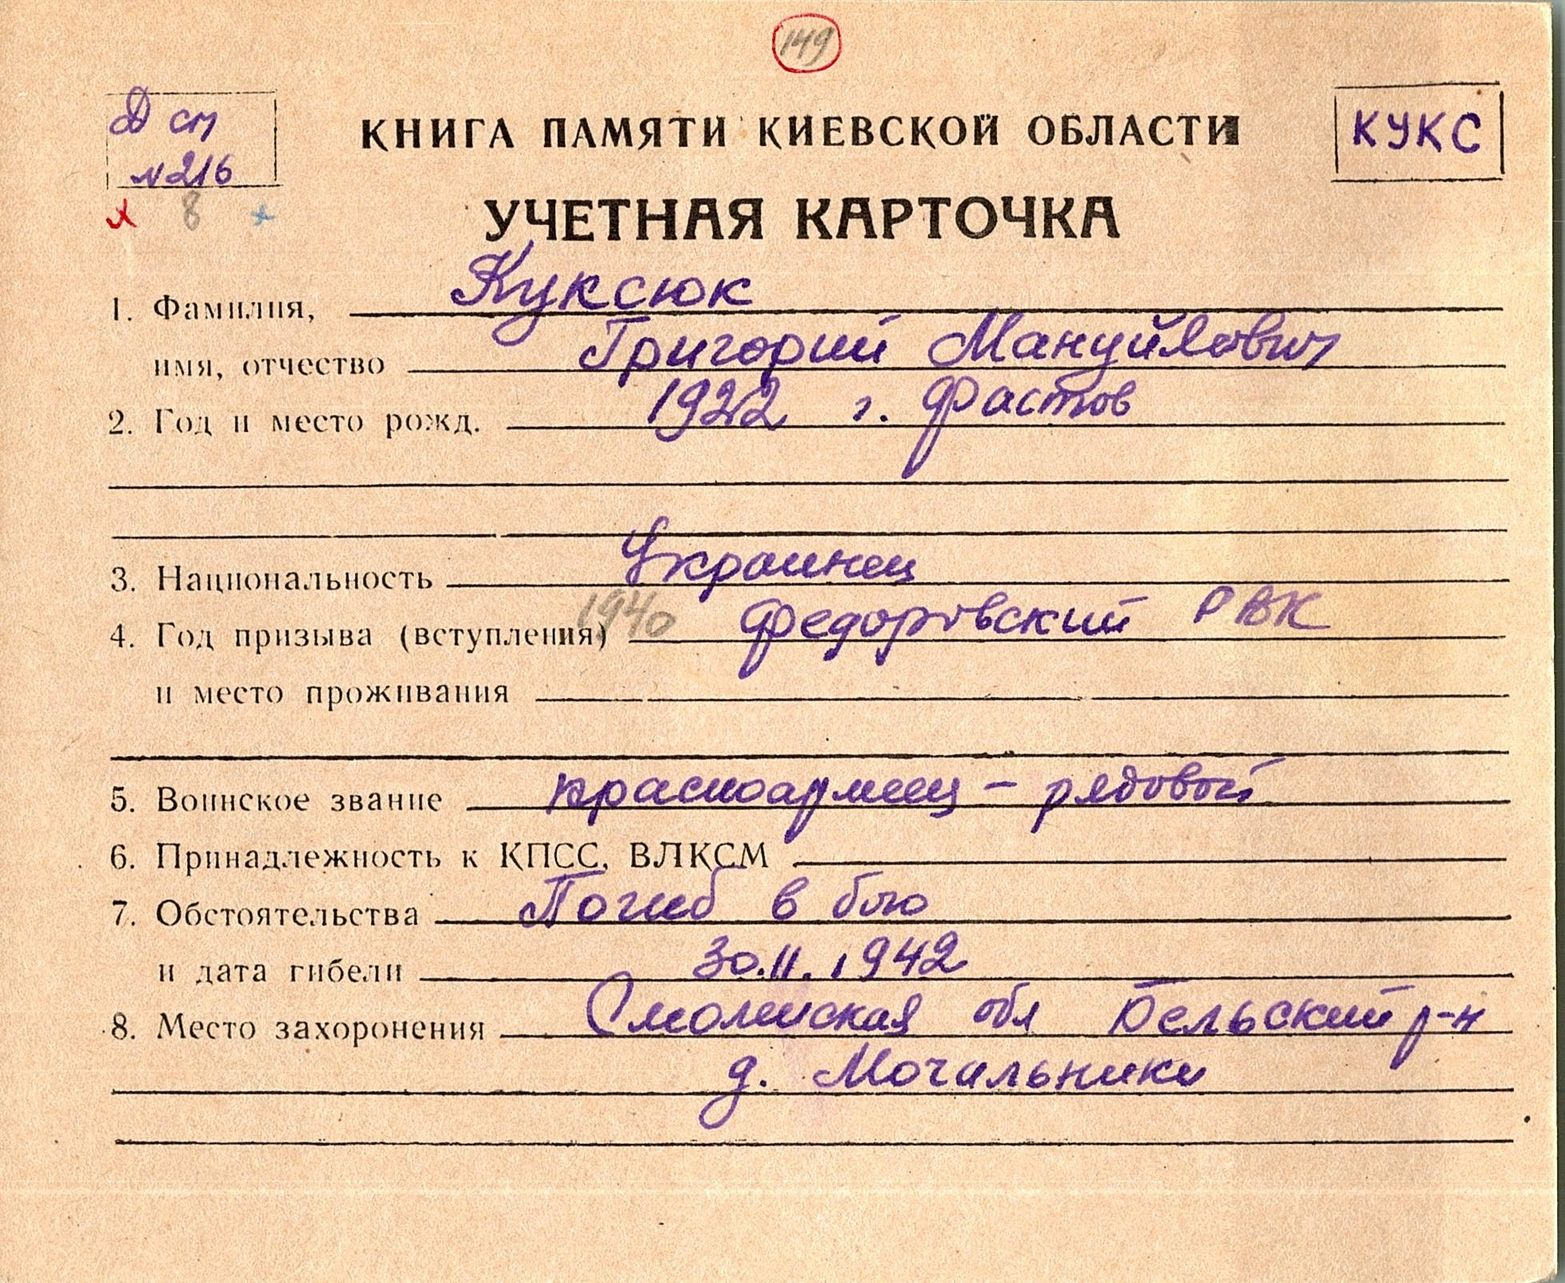 149
Д ст
КНИГА ПАМЯТИ КИЕВСКОЙ ОБЛАСТИ
КУКС
№216
8
УЧЕТНАЯ КАРТОЧКА
1. Фамилия, Куксюк
имя, отчество Григорий Мануйлович
2. Год и место рожд. 1922 г. Фастов
3. Национальность Украинец
4. Год призыва (вступления) 1940 Федоровский РВК
и место проживания
5. Воинское звание красноармеец – рядовой
6. Принадлежность к КПСС, ВЛКСМ
7. Обстоятельства Погиб в бою
и дата гибели 30.11.1942
8. Место захоронения Смоленская обл Бельский р-н
д. Мочальники